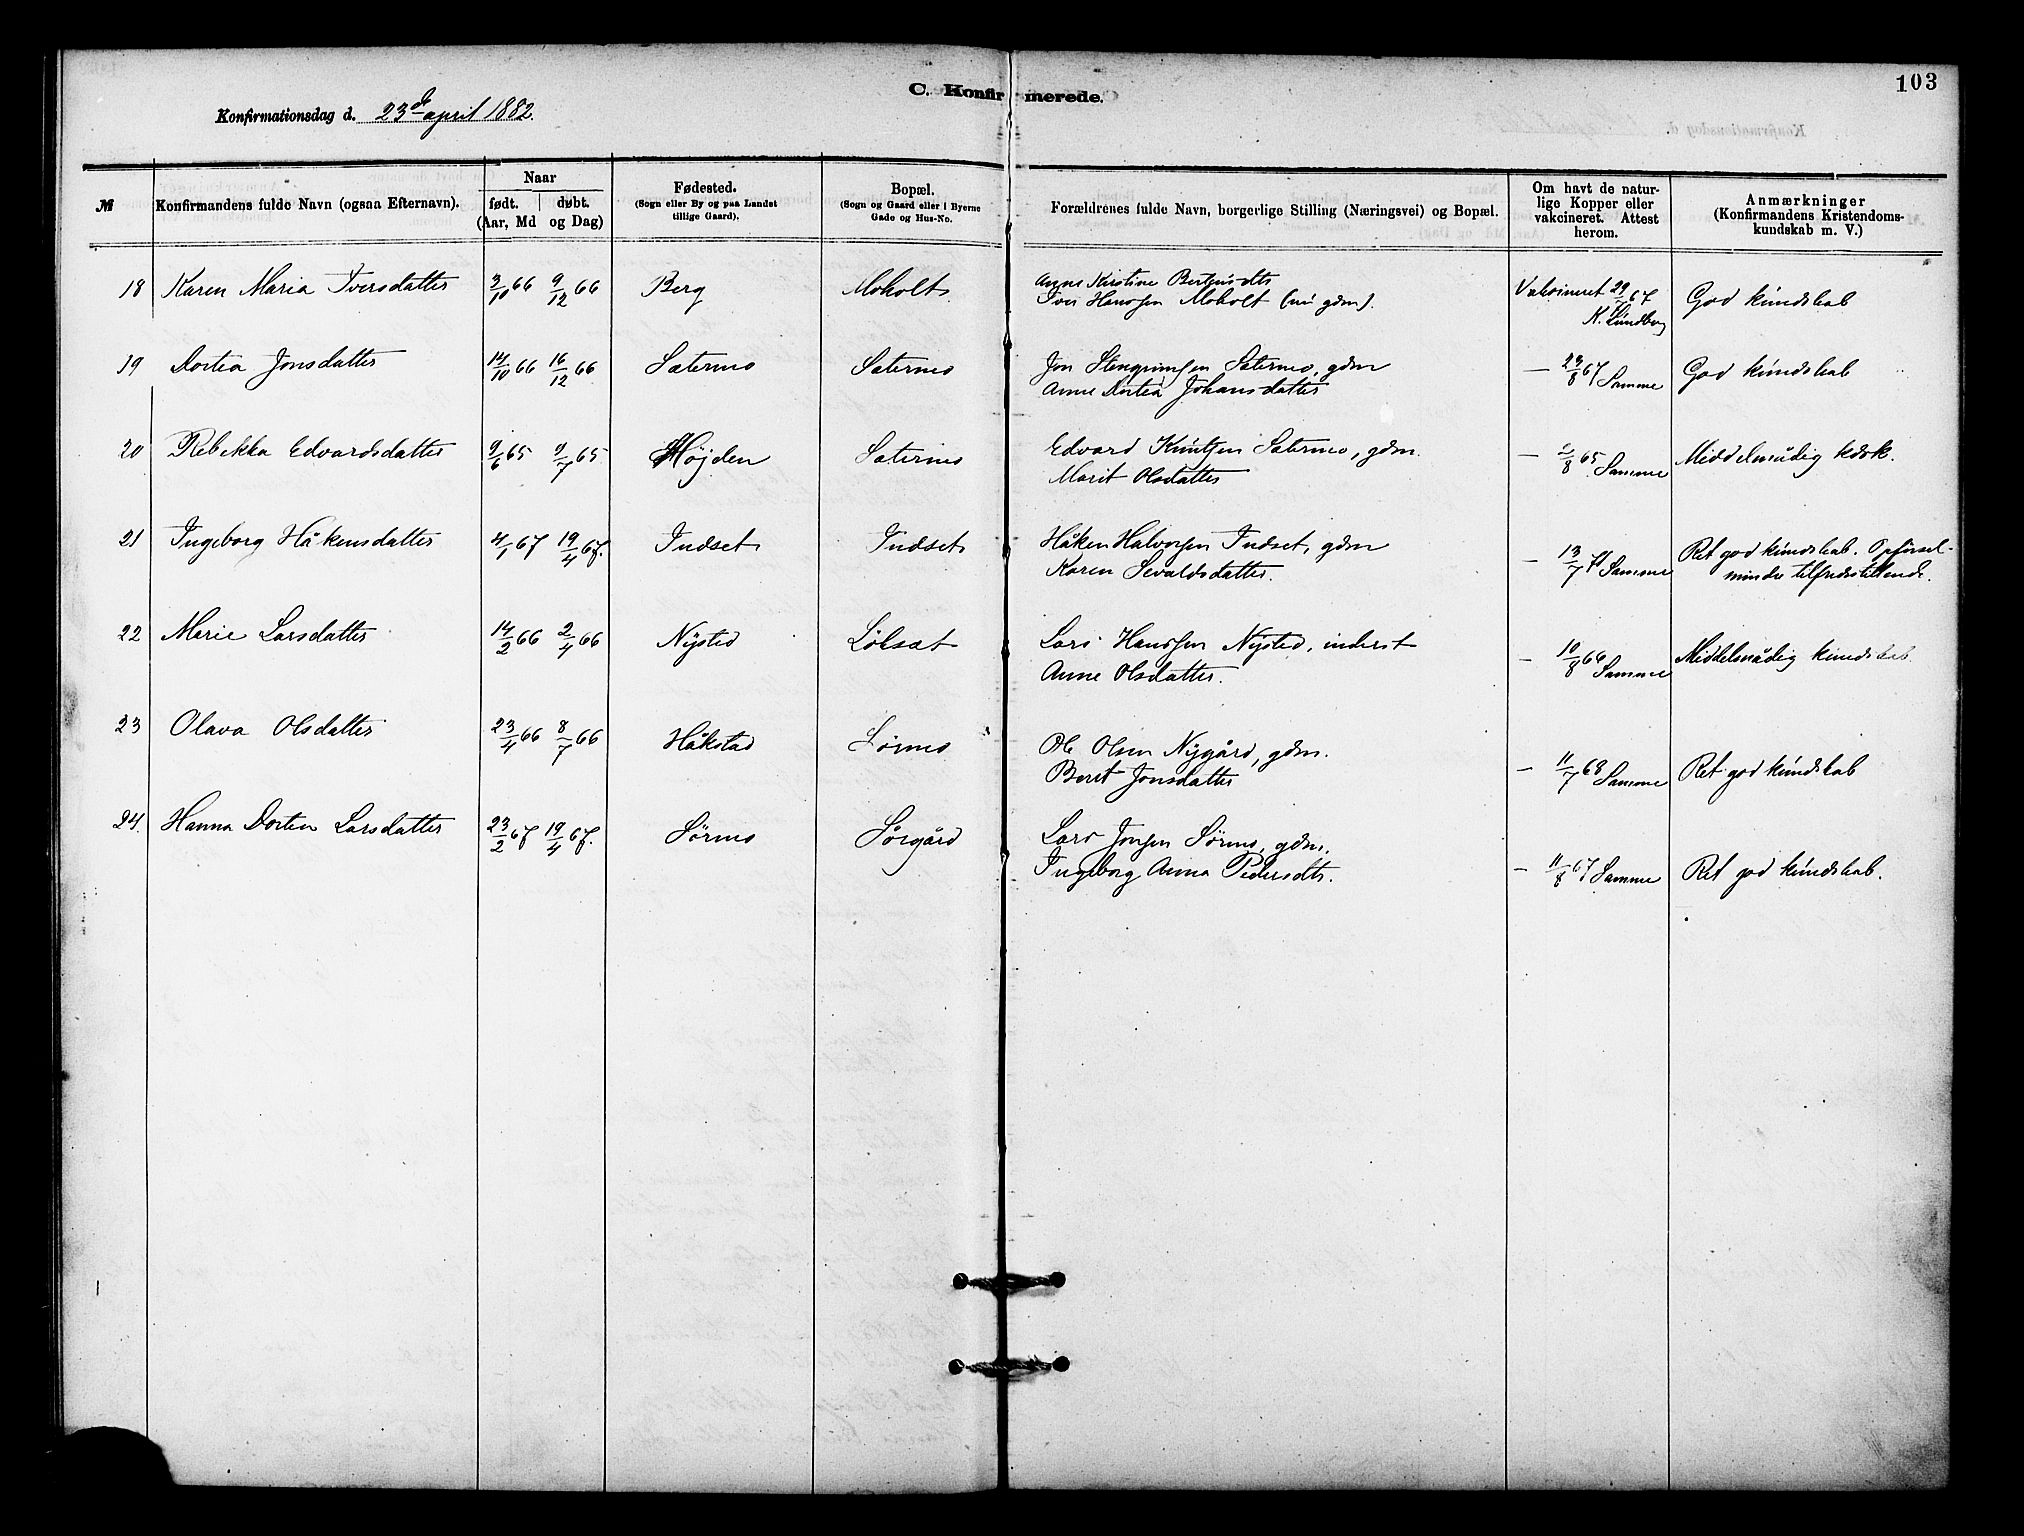 103
C. Konfirmerede.
Konfirmationsdag d. 23de april 1882.
№
Konfirmandens fulde Navn (ogsaa Efternavn).
Naar
født. døbt.
(Aar, Md og Dag)
Fødested.
(Sogn eller By og paa Landet
tillige Gaard).
Bopæl.
(Sogn og Gaard eller i Byerne
Gade og Hus-No.
Forældrenes fulde Navn, borgerlige Stilling (Næringsvei) og Bopæl.
Om havt de natur-
lige Kopper eller
vakcineret. Attest
herom.
Anmærkninger
(Konfirmandens Kristendoms-
kundskab m. V.)
18 Karen Maria Iversdatter 3/10 66 9/12 66 Berg Moholt
Anne Kirstine
Iver Hansen Moholt (nu gdm). Vakcineret 29/7 67 God kundskab
K. Lundberg
19 Dortea Jonsdatter 14/10 66 16/12 66 Sætermo Sætermo Jon Stengrimsen Sætermo, gdm — 23/8 67 Samme God kundskab
Anne Dortea Johansdatter
20 Rebekka Edvardsdatter 9/6 65 9/7 65 Højden Sætermo Edvard Knutsen Sætermo, gdm. — 2/8 65 Samme Middelmådig kdsk.
Marit Olsdatter
21 Ingeborg Håkensdatter 4/1 67 19/4 67. Indset Indset Håken Halvorsen Indset, gdm — 13/7 71 Samme Ret god kundskab. Opførsel
Karen Sevaldsdatter. mindre tilfredsstillende.
22 Marie Larsdatter 14/2 66 2/4 66 Nysted Løksæt Lars Hanssen Nysted, inderst — 10/8 66 Samme Middelmådig kundskab.
Anne Olsdatter.
23 Olava Olsdatter 23/4 66 8/7 66 Håkstad Sørmo Ole Olsen Nygård, gdm. — 11/7 68 Samme Ret god kundskab
Beret Jonsdatter
24. Hanna Dortea Larsdatter 23/2 67 19/4 67. Sørmo Sørgård Lars Jonsen Sørmo, gdm. — 11/8 67 Samme Ret god kundskab.
Ingeborg Anna Pedersdtr.